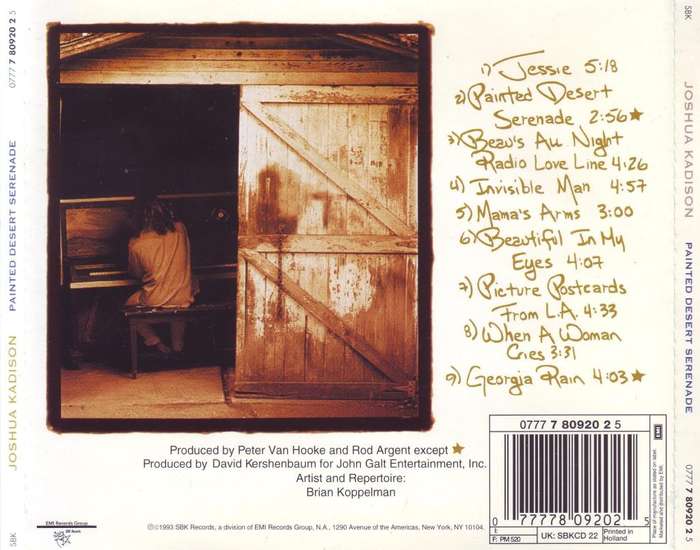 SBK
0777 7 80920 2 5
PAINTED DESERT SERENADE
JOSHUA KADISON
SBK
1) Jessie 5:18
2) Painted Desert
Serenade 2:56★
3) Beau's All Night
Radio Love Line 4:26
4) Invisible Man 4:57
5) Mama's Arms 3:00
6) Beautiful In My
Eyes 4:07
7) Picture Postcards
From L.A. 4:33
8) When A Woman
Cries 3:31
9) Georgia Rain 4:03★
Produced by Peter Van Hooke and Rod Argent except ★
Produced by David Kershenbaum for John Galt Entertainment, Inc.
Artist and Repertoire:
Brian Koppelman
EMI Records Group
℗©1993 SBK Records, a division of EMI Records Group, N.A., 1290 Avenue of the Americas, New York, NY 10104.
0777 7 80920 2 5
0 77778 09202 5
F: PM 520
UK: SBKCD 22
Printed in
Holland
EMI
Marketed and distributed by EMI.
SBK
JOSHUA KADISON
PAINTED DESERT SERENADE
0777 7 80920 2 5